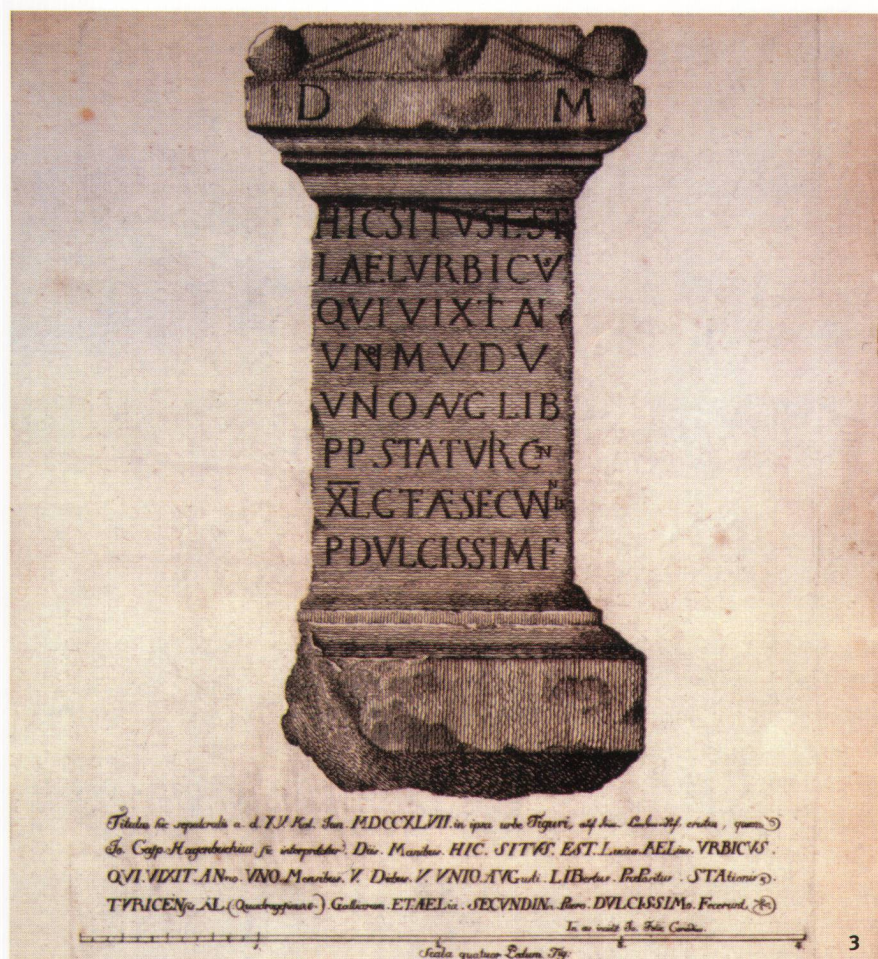 D M
HIC SITVS EST
L AEL VRBICV
QVI VIXIT AN
VN M V D V
VNO AVG LIB
PP STA TVRICEN
XL G ET AE SECVN
P DVLCISSIM F
Titulus hic sepulcralis a. d. XV Kal. Jun. MDCCXLVII. in ipsa urbe Tiguri, eruta, quem
Jo. Casp. Hagenbuchius sic interpretatur. Diis. Manibus. HIC. SITVS. EST. Lucius. AELius. VRBICVS.
QVI. VIXIT. ANno. VNO. Mensibus. V. Diebus. V. VNIO. AVGusti. LIBertus. PræPositus. STAtionis.
TVRICENsis. XL. (Quadragesimæ.) Galliarum. ET. AELia. SECVNDINa. Puero. DVLCISSIMo. Fecerunt.
In æs incidit Jo. Felix Corrodius.
1. 2. 3. 4.
Scala quatuor Pedum. Tig:
3